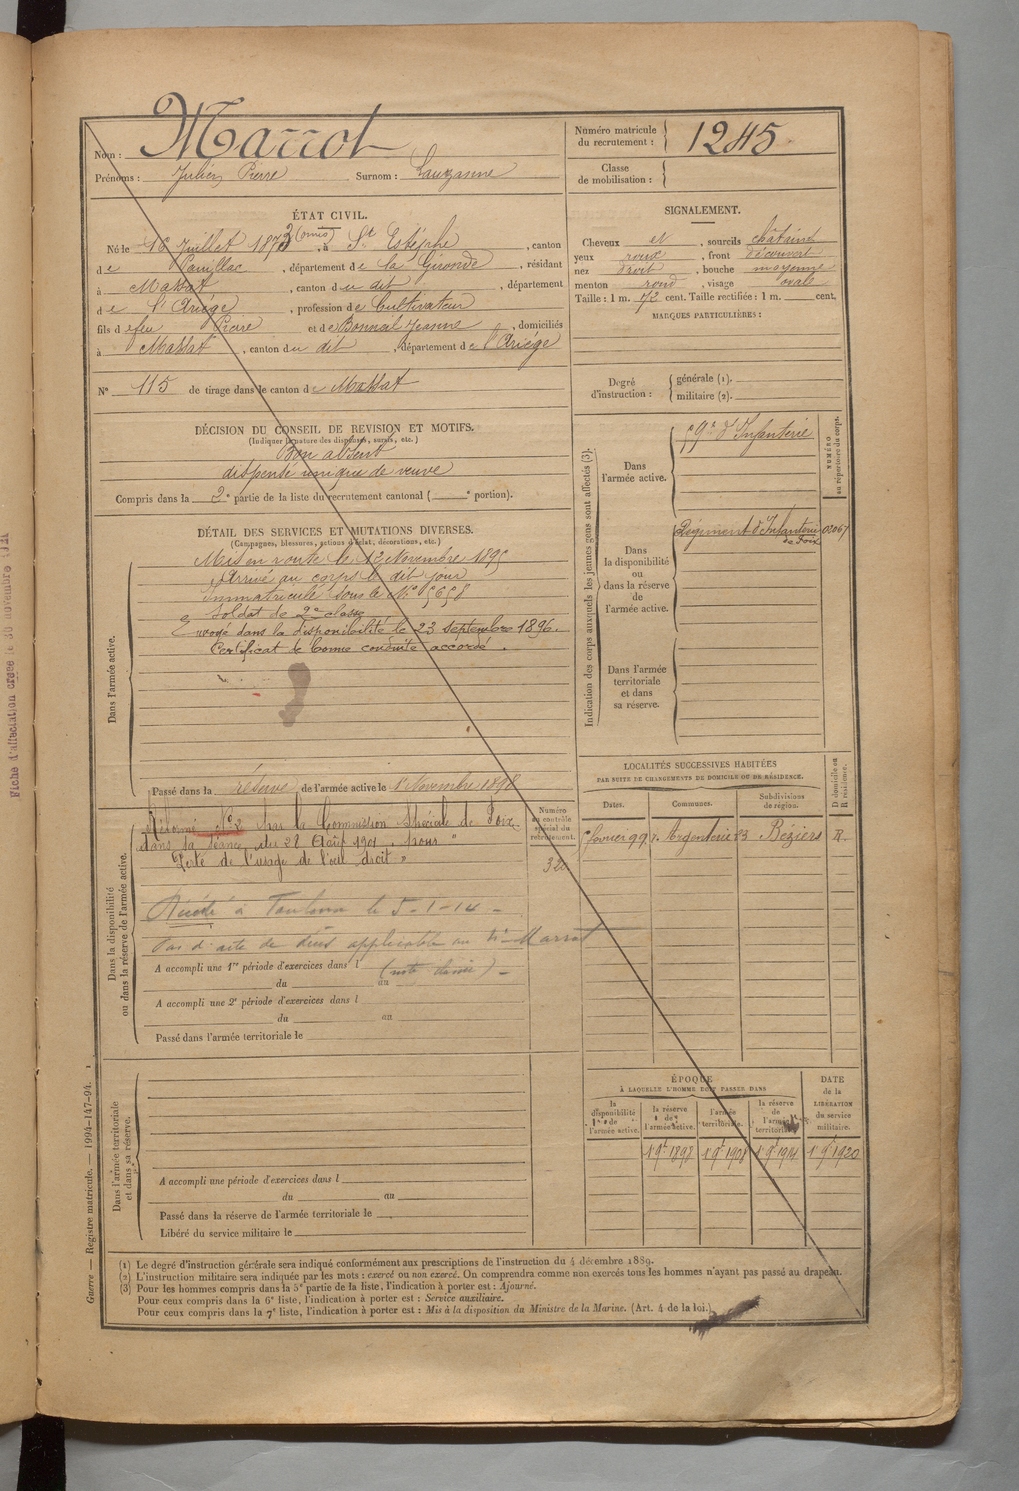 Nom : Marrot
Prénoms : Julien Pierre Surnom : Lauzanne
Numéro matricule du recrutement : 1245
Classe de mobilisation :
ÉTAT CIVIL.
Né le 16 Juillet 1873 (omis), à St Estèphe, canton
de Pauillac, département de la Gironde, résidant
à Massat, canton du dit, département
de l'Ariège, profession de Cultivateur
fils de feu Pierre et de Bonneil Jeanne, domiciliés
à Massat, canton du dit, département de l'Ariège
N° 115 de tirage dans le canton de Massat
SIGNALEMENT.
Cheveux et, sourcils châtains
yeux roux, front découvert
nez droit, bouche moyenne
menton rond, visage ovale
Taille : 1 m. 72 cent. Taille rectifiée : 1 m. cent.
MARQUES PARTICULIÈRES :
Degré d'instruction : générale (1).
militaire (2).
DÉCISION DU CONSEIL DE REVISION ET MOTIFS.
(Indiquer la nature des dispenses, sursis, etc.)
Bon absent
dispensé unique de veuve
Compris dans la 2e partie de la liste du recrutement cantonal ( e portion).
DÉTAIL DES SERVICES ET MUTATIONS DIVERSES.
(Campagnes, blessures, actions d'éclat, décorations, etc.)
Dans l'armée active.
Mis en route le 12 Novembre 1895
Arrivé au corps le dit jour
Immatriculé sous le N° 5658
Soldat de 2e classe
Envoyé dans la disponibilité le 23 septembre 1896.
Certificat de bonne conduite accordé.
Passé dans la réserve de l'armée active le 1er Novembre 1898
Indication des corps auxquels les jeunes gens sont affectés (3).
NUMÉRO au répertoire du corps.
Dans l'armée active.
59e d'Infanterie
Dans la disponibilité ou dans la réserve de l'armée active.
Régiment d'Infanterie de Foix 02067
Dans l'armée territoriale et dans sa réserve.
Dans la disponibilité ou dans la réserve de l'armée active.
Numéro au contrôle spécial du recrutement.
320
Réformé N° 2 par la Commission Spéciale de Foix
dans sa séance du 28 Août 1901 pour
"Perte de l'usage de l'œil droit"
Décédé à Toulouse le 5-1-14 -
Pas d'acte de décès applicable au Nt Marrot
A accompli une 1re période d'exercices dans l
du au
A accompli une 2e période d'exercices dans l
du au
Passé dans l'armée territoriale le
LOCALITÉS SUCCESSIVES HABITÉES
PAR SUITE DE CHANGEMENTS DE DOMICILE OU DE RÉSIDENCE.
Dates. Communes. Subdivisions de région. D domicile ou R résidence.
février 99 Argenterie 23 Béziers R.
Dans l'armée territoriale et dans sa réserve.
A accompli une période d'exercices dans l
du au
Passé dans la réserve de l'armée territoriale le
Libéré du service militaire le
ÉPOQUE
À LAQUELLE L'HOMME DOIT PASSER DANS
la disponibilité de l'armée active.
la réserve de l'armée active.
l'armée territoriale.
la réserve de l'armée territoriale.
DATE de la LIBÉRATION du service militaire.
1 9bre 1920
(1) Le degré d'instruction générale sera indiqué conformément aux prescriptions de l'instruction du 4 décembre 1889.
(2) L'instruction militaire sera indiquée par les mots : exercé ou non exercé. On comprendra comme non exercés tous les hommes n'ayant pas passé au drapeau.
(3) Pour les hommes compris dans la 5e partie de la liste, l'indication à porter est : Ajourné.
Pour ceux compris dans la 6e liste, l'indication à porter est : Service auxiliaire.
Pour ceux compris dans la 7e liste, l'indication à porter est : Mis à la disposition du Ministre de la Marine. (Art. 4 de la loi.)
Guerre — Registre matricule. — 1994-147-94.